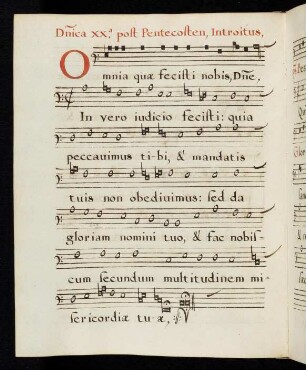 Dn̄ica XX.ᵃ post Pentecosten, Introitus,
Omnia quæ fecisti nobis, Dn̄e,
In vero iudicio fecisti: quia
peccavimus ti-bi, & mandatis
tuis non obedivimus: sed da
gloriam nomini tuo, & fac nobis-
cum secundum multitudinem mi-
sericordiæ tu-æ,